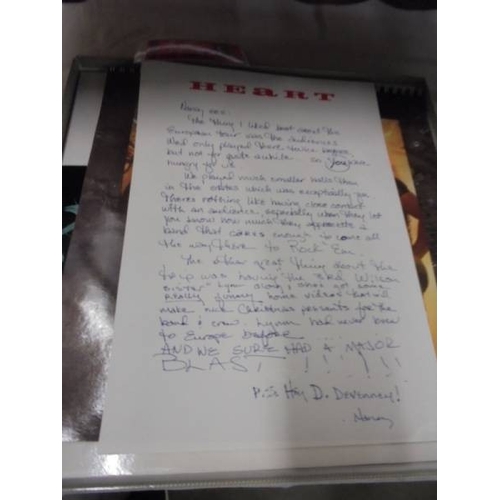 HEART
Nancy
The thing I liked best about the
European tour was the audiences
Had only played there twice before
but not for quite awhile so you were
hungry for us
We played much smaller halls than
in the states which was exceptionally fun
Theres nothing like having close contact
with an audience, especially when they let
you know how much they appreciate a
band that cares enough to come all
the way there to Rock Em
The other great thing about the
trip was having the 3rd Wilson
sister Lynn along, and got some
REALLY funny home videos that will
make nice Christmas presents for the
band & crew. Lynn had never been
to Europe before
AND WE SURE HAD A MAJOR
BLAST! ! ! ! !
P.S. Hey D. Devenney!
Nancy